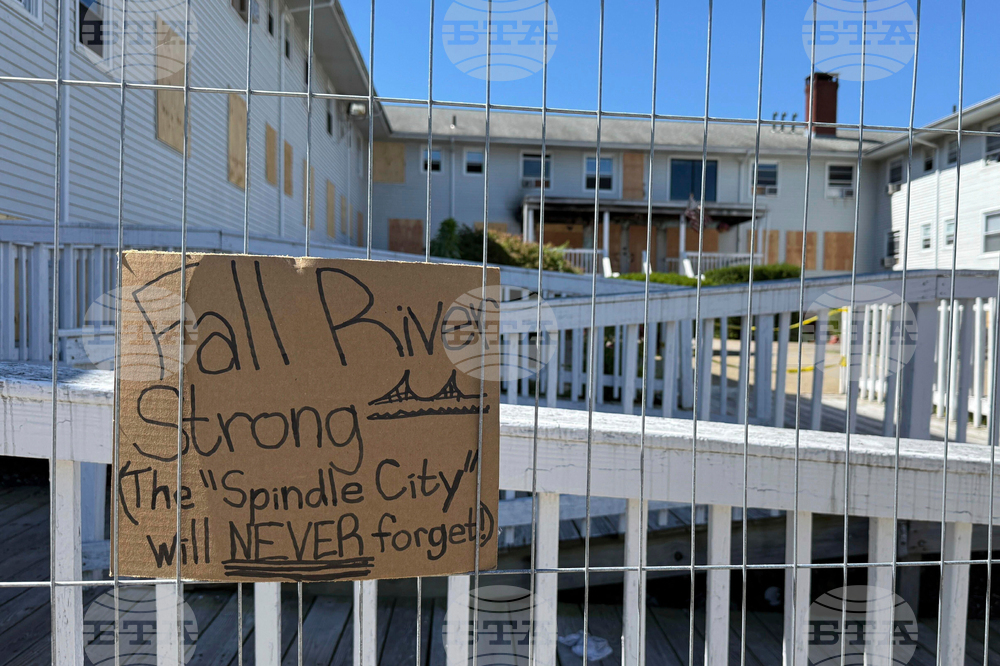 Fall River
Strong
(The "Spindle City"
will NEVER forget!)
БТА
БТА
БТА
БТА
БТА
БТА
БТА
БТА
БТА